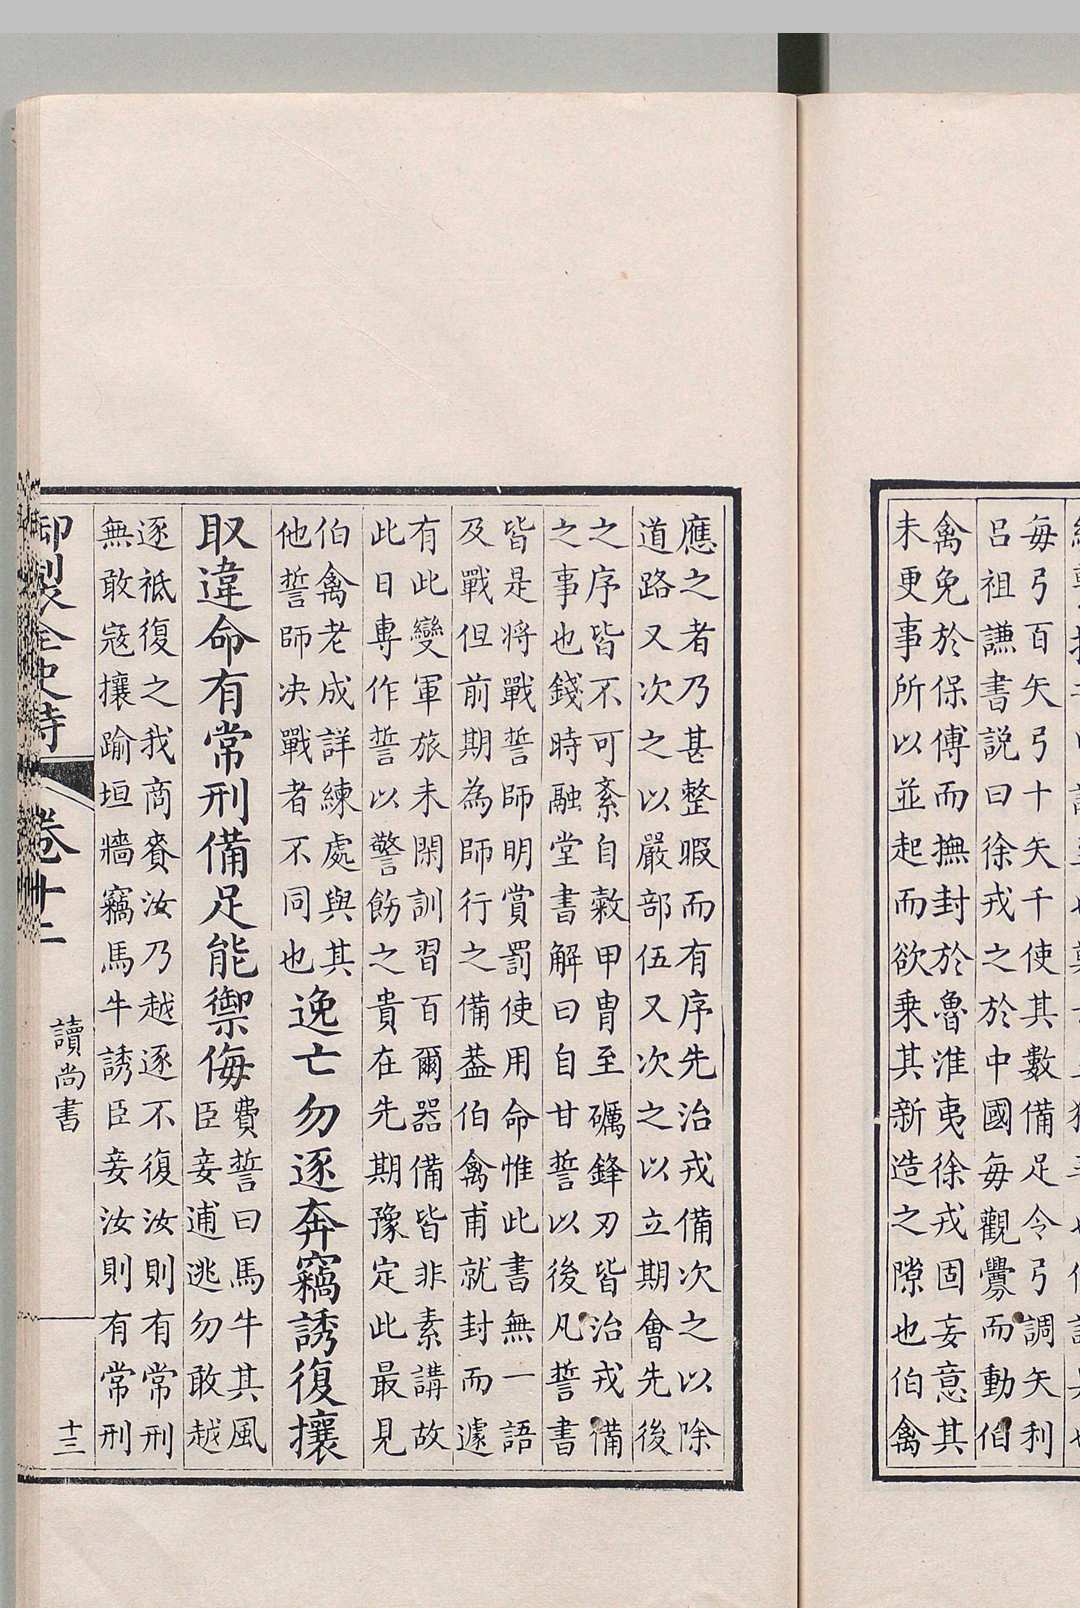 每弓百矢弓十矢千使其數備足令弓調矢利
呂祖謙書説曰徐戎之於中國每觀釁而動伯
禽免於保傅而撫封於魯淮夷徐戎固妄意其
未更事所以並起而欲乗其新造之隙也伯禽
應之者乃甚整暇而有序先治戎備次之以除
道路又次之以嚴部伍又次之以立期會先後
之序皆不可紊自敹甲胄至礪鋒刃皆治戎備
之事也錢時融堂書解曰自甘誓以後凡誓書
皆是将戰誓師明賞罰使用命惟此書無一語
及戰但前期為師行之備葢伯禽甫就封而遽
有此變軍旅未閑訓習百爾器備皆非素講故
此日專作誓以警飭之貴在先期豫定此最見
伯禽老成詳練處與其
他誓師决戰者不同也
逸亡勿逐奔竊誘復攘
取違命有常刑備足能禦侮
費誓曰馬牛其風
臣妾逋逃勿敢越
逐祗復之我商賚汝乃越逐不復汝則有常刑
無敢寇攘踰垣牆竊馬牛誘臣妾汝則有常刑
御製全史詩
卷十二
讀尚書
十三